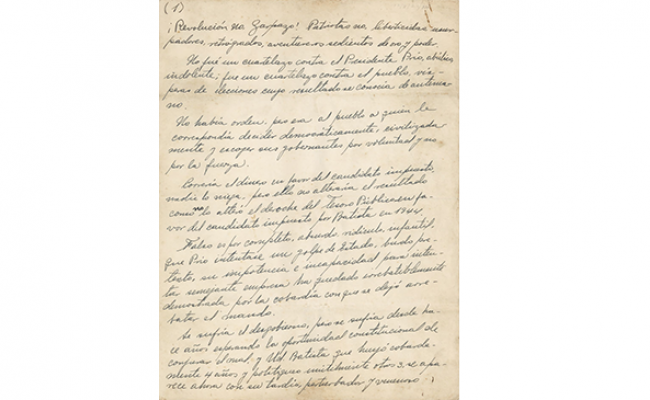 (1)
¡Revolución no Zarpazo! Patriotas no liberticidas usur-
padores, retrógrados, aventureros sedientos de oro y poder.
No fué un cuartelazo contra el Presidente Prío, abúlico,
indolente; fue un cuartelazo contra el pueblo, vís-
peras de elecciones cuyo resultado se conocía de antema-
no.
No había orden, pero era el pueblo a quien le
correspondía decidir democráticamente, civilizada
mente y escoger sus gobernantes por voluntad y no
por la fuerza.
Correría el dinero en favor del candidato impuesto,
nadie lo niega, pero ello no alteraría el resultado
como no lo alteró el derroche del Tesoro Público en fa-
vor del candidato impuesto por Batista en 1944.
Falso es por completo, absurdo, ridículo, infantil,
que Prío intentase un golpe de Estado, burdo pre-
texto, su impotencia e incapacidad para inten-
tar semejante empresa ha quedado irrebatiblemente
demostrada por la cobardía con que se dejó arre-
batar el mando.
Se sufría el desgobierno, pero se sufría desde ha-
ce años esperando la oportunidad constitucional de
conjurar el mal, y Ud. Batista que huyó cobarde-
mente 4 años y politiqueó inútilmente otros 3, se apa-
rece ahora con su tardío, perturbador y venenoso